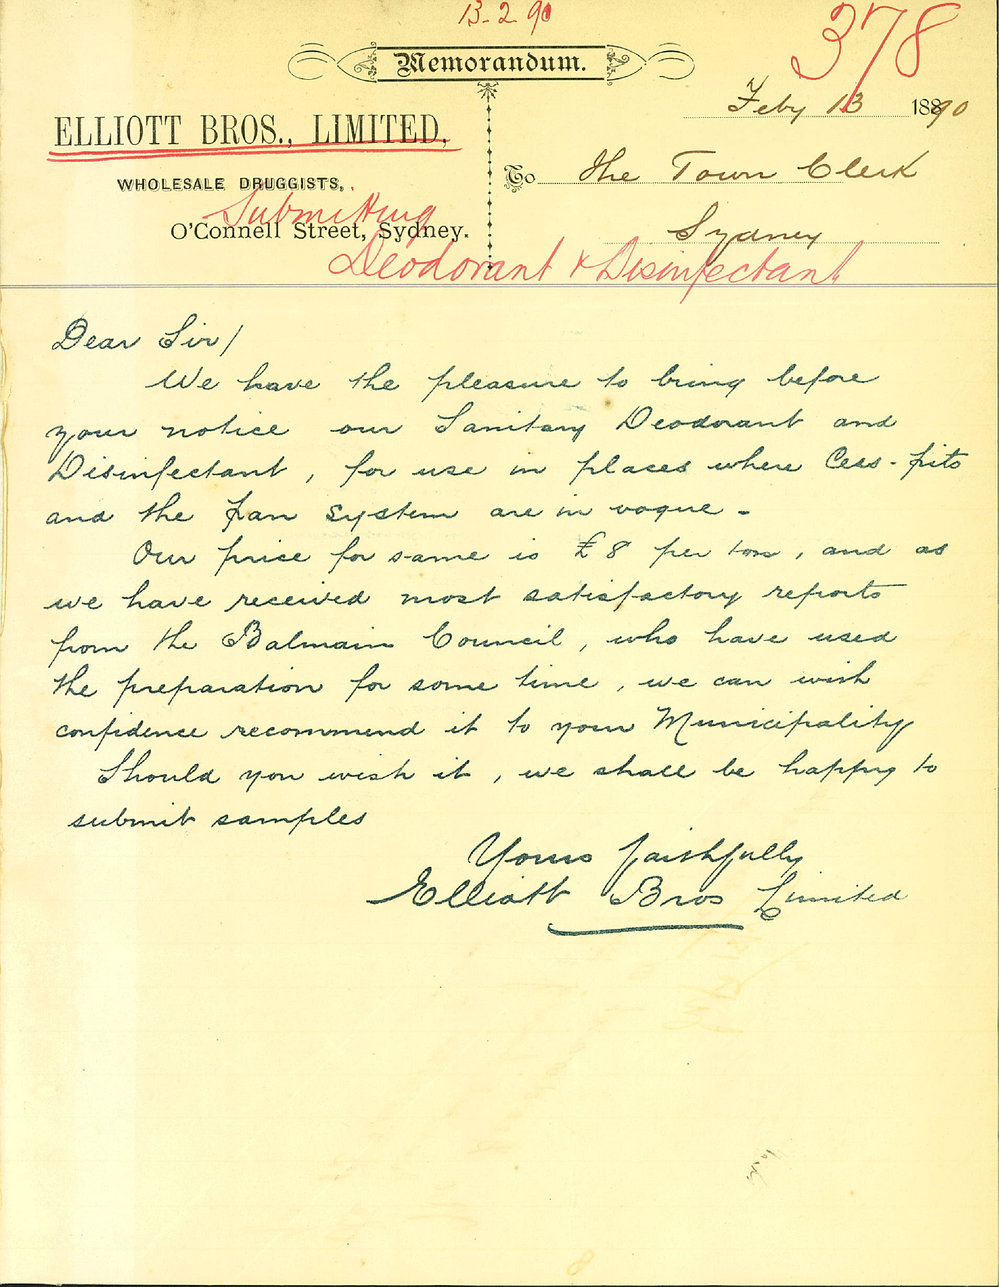 13-2-90
378
Memorandum.
Feby 13 1890
ELLIOTT BROS., LIMITED,
WHOLESALE DRUGGISTS,
O'Connell Street, Sydney.
To The Town Clerk
Sydney
Submitting
Deodorant & Disinfectant
Dear Sir/
We have the pleasure to bring before
your notice our Sanitary Deodorant and
Disinfectant, for use in places where Cess-pits
and the pan system are in vogue -
Our price for same is £8 per ton, and as
we have received most satisfactory reports
from the Balmain Council, who have used
the preparation for some time, we can with
confidence recommend it to your Municipality
Should you wish it, we shall be happy to
submit samples
Yours faithfully
Elliott Bros Limited